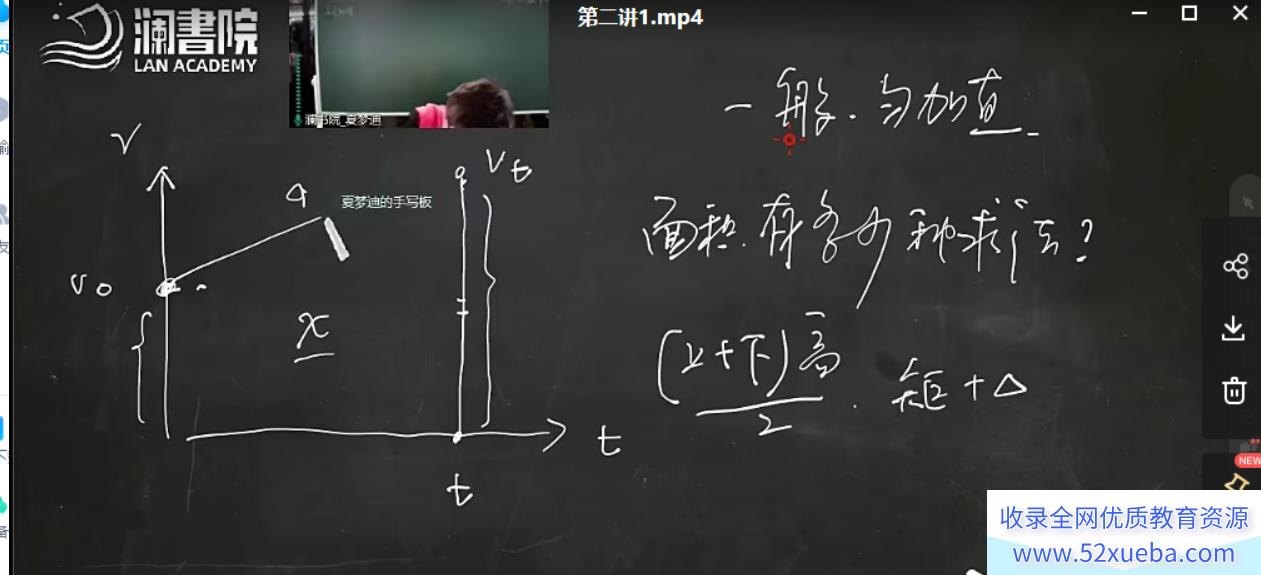 第二讲1.mp4
澜書院
LAN ACADEMY
澜书院_夏梦迪
一般.匀加直
v
a
夏梦迪的手写板
vt
v0
x
面积.有多少种求法?
(上+下)高
2
. 矩+△
t
t
NEW
收录全网优质教育资源
www.52xueba.com